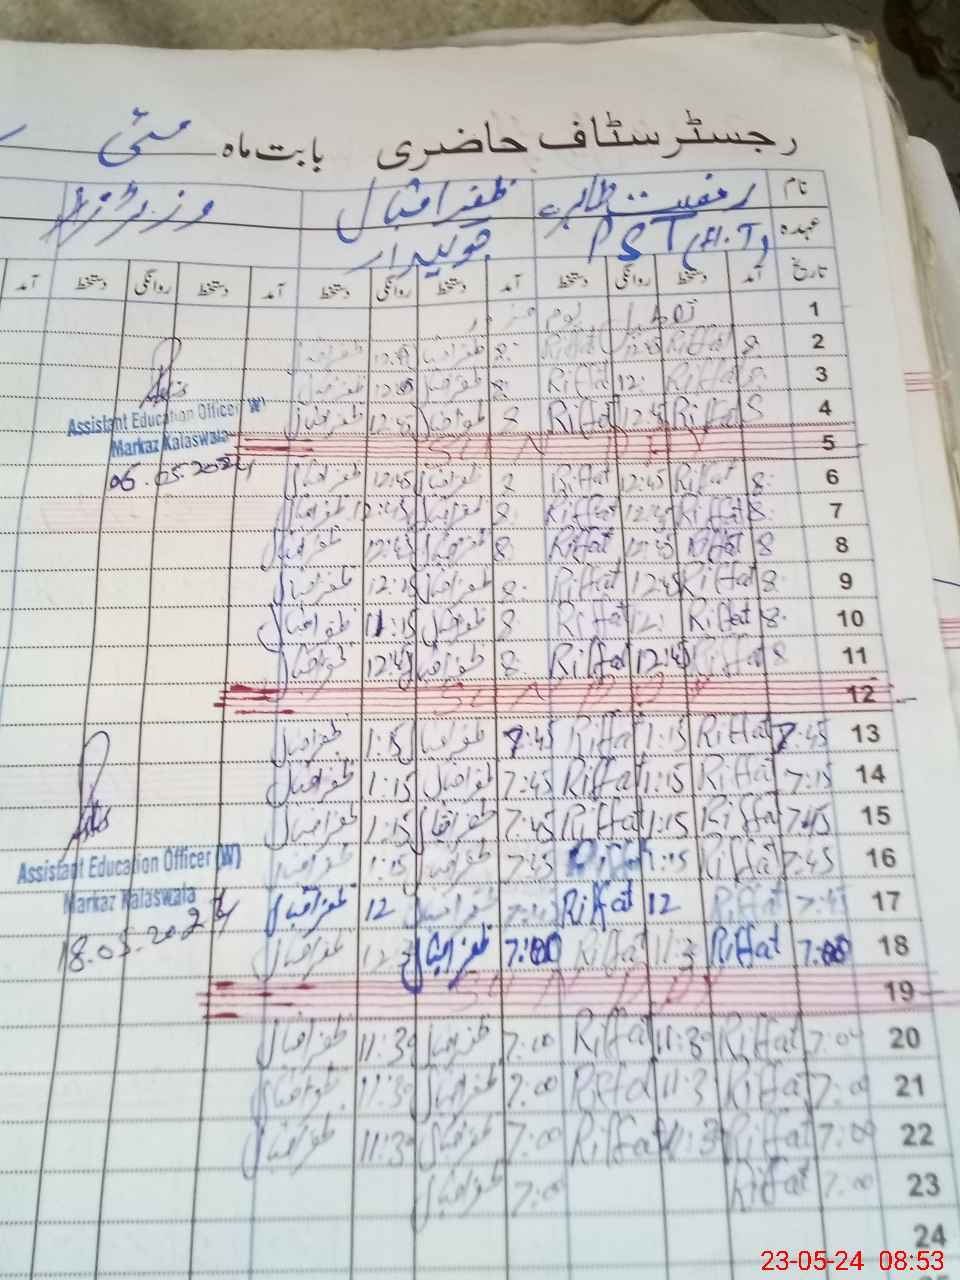 رجسٹر سٹاف حاضری بابت ماہ مئی
نام رفعت طاہرہ ظفر اقبال
عہدہ PST (H.T) چوکیدار
تاریخ آمد دستخط روانگی دستخط آمد دستخط روانگی دستخط آمد دستخط روانگی دستخط آمد
1
2 8: Riffat 12:45 Riffat 8: ظفر اقبال ظفر اقبال
3 8: Riffat 12: Riffat 8: ظفر اقبال ظفر اقبال
4 8 Riffat 12:45 Riffat 8 ظفر اقبال 12:45 ظفر اقبال
Assistant Education Officer (W)
Markaz Kalaswala
06.05.2024
5 SUNDAY
6 8: Riffat 12:45 Riffat 8 ظفر اقبال 12:45 ظفر اقبال
7 8: Riffat 12:45 Riffat 8: ظفر اقبال 12:45 ظفر اقبال
8 8 Riffat 12:45 Riffat 8: ظفر اقبال 12:45 ظفر اقبال
9 8: Riffat 12:45 Riffat 8: ظفر اقبال 12:15 ظفر اقبال
10 8: Riffat 12: Riffat 8: ظفر اقبال 11:15 ظفر اقبال
11 8 Riffat 12:45 Riffat 8: ظفر اقبال 12:45 ظفر اقبال
12 SUNDAY
13 7:45 Riffat 1:15 Riffat 7:45 ظفر اقبال 1:15 ظفر اقبال
14 7:15 Riffat 1:15 Riffat 7:45 ظفر اقبال 1:15 ظفر اقبال
15 7:45 Riffat 1:15 Riffat 7:45 ظفر اقبال 1:15 ظفر اقبال
16 7:45 Riffat 1:15 Riffat 7:45 ظفر اقبال 1:15 ظفر اقبال
Assistant Education Officer (W)
Markaz Kalaswala
18.05.2024
17 7:45 Riffat 12 Riffat 7:45 ظفر اقبال 12 ظفر اقبال
18 7:00 Riffat 11:3 Riffat 7:00 ظفر اقبال ظفر اقبال
19 SUNDAY
20 7:00 Riffat 11:30 Riffat 7:00 ظفر اقبال 11:30 ظفر اقبال
21 7:00 Riffat 11:3 Riffat 7:00 ظفر اقبال 11:30 ظفر اقبال
22 7:00 Riffat 11:3 Riffat 7:00 ظفر اقبال 11:30 ظفر اقبال
23 7:00 Riffat 7:00 ظفر اقبال
24
23-05-24 08:53